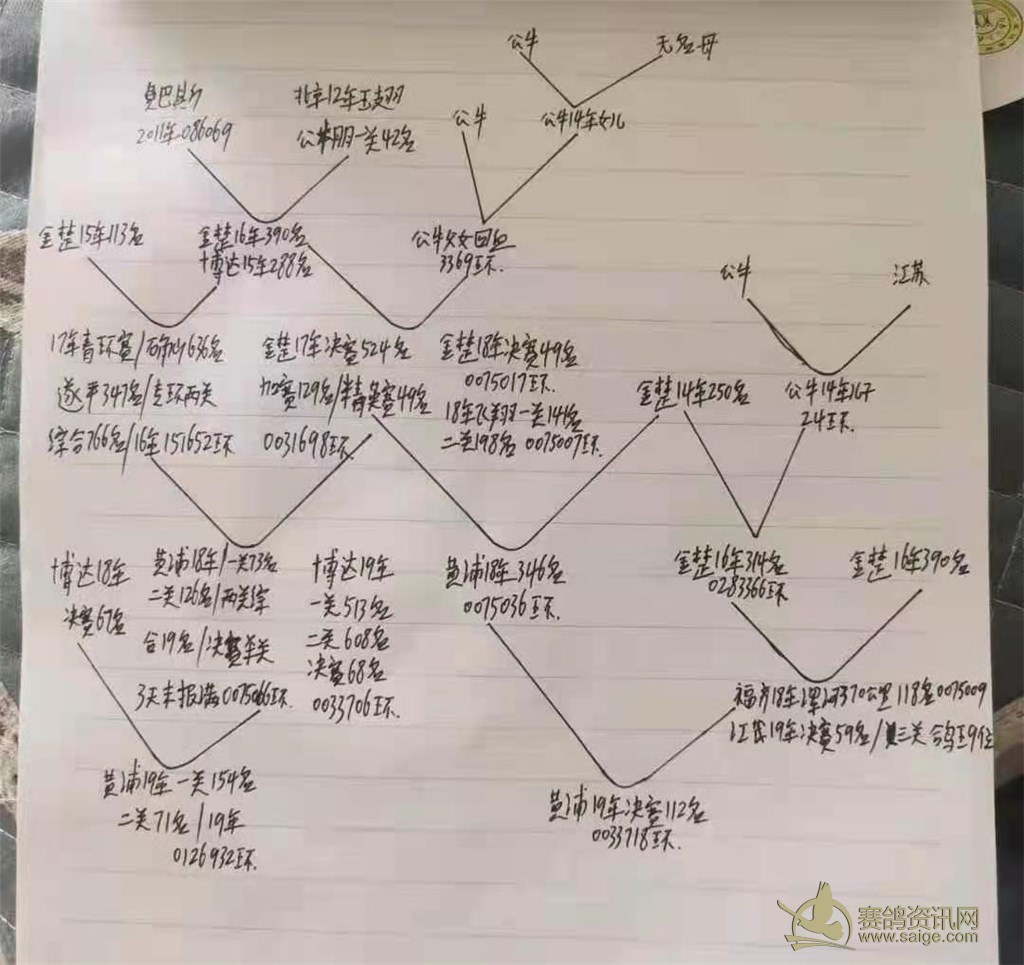 公牛
无名母
奥巴
2011年086069
北京12年
公牛 一关42名
公牛
公牛14年女儿
金楚15年113名
金楚16年390名
博达15年288名
公牛父女回血
3369环.
公牛
江苏
17年青环赛/ 636名
遂平347名/专环两关
综合766名/16年151652环
金楚17年决赛524名
加赛129名/ 49名
0031698环.
金楚18年决赛49名
0075017环.
18年飞翔一关141名
二关198名 0075007环.
金楚14年250名
公牛14年
24环.
博达18年
决赛67名
黄浦18年/一关73名
二关126名/两关综
合19名/决赛
3天未报满0075066环.
博达19年
一关513名
二关608名
决赛68名
0033706环.
黄浦18年346名
0075036环.
金楚16年314名
0283366环
金楚16年390名
18年 370公里118名0075009
19年决赛59名/ 三关
黄浦19年一关154名
二关71名/19年
0126932环.
黄浦19年决赛112名
0033718环.
赛鸽资讯网
www.saige.com